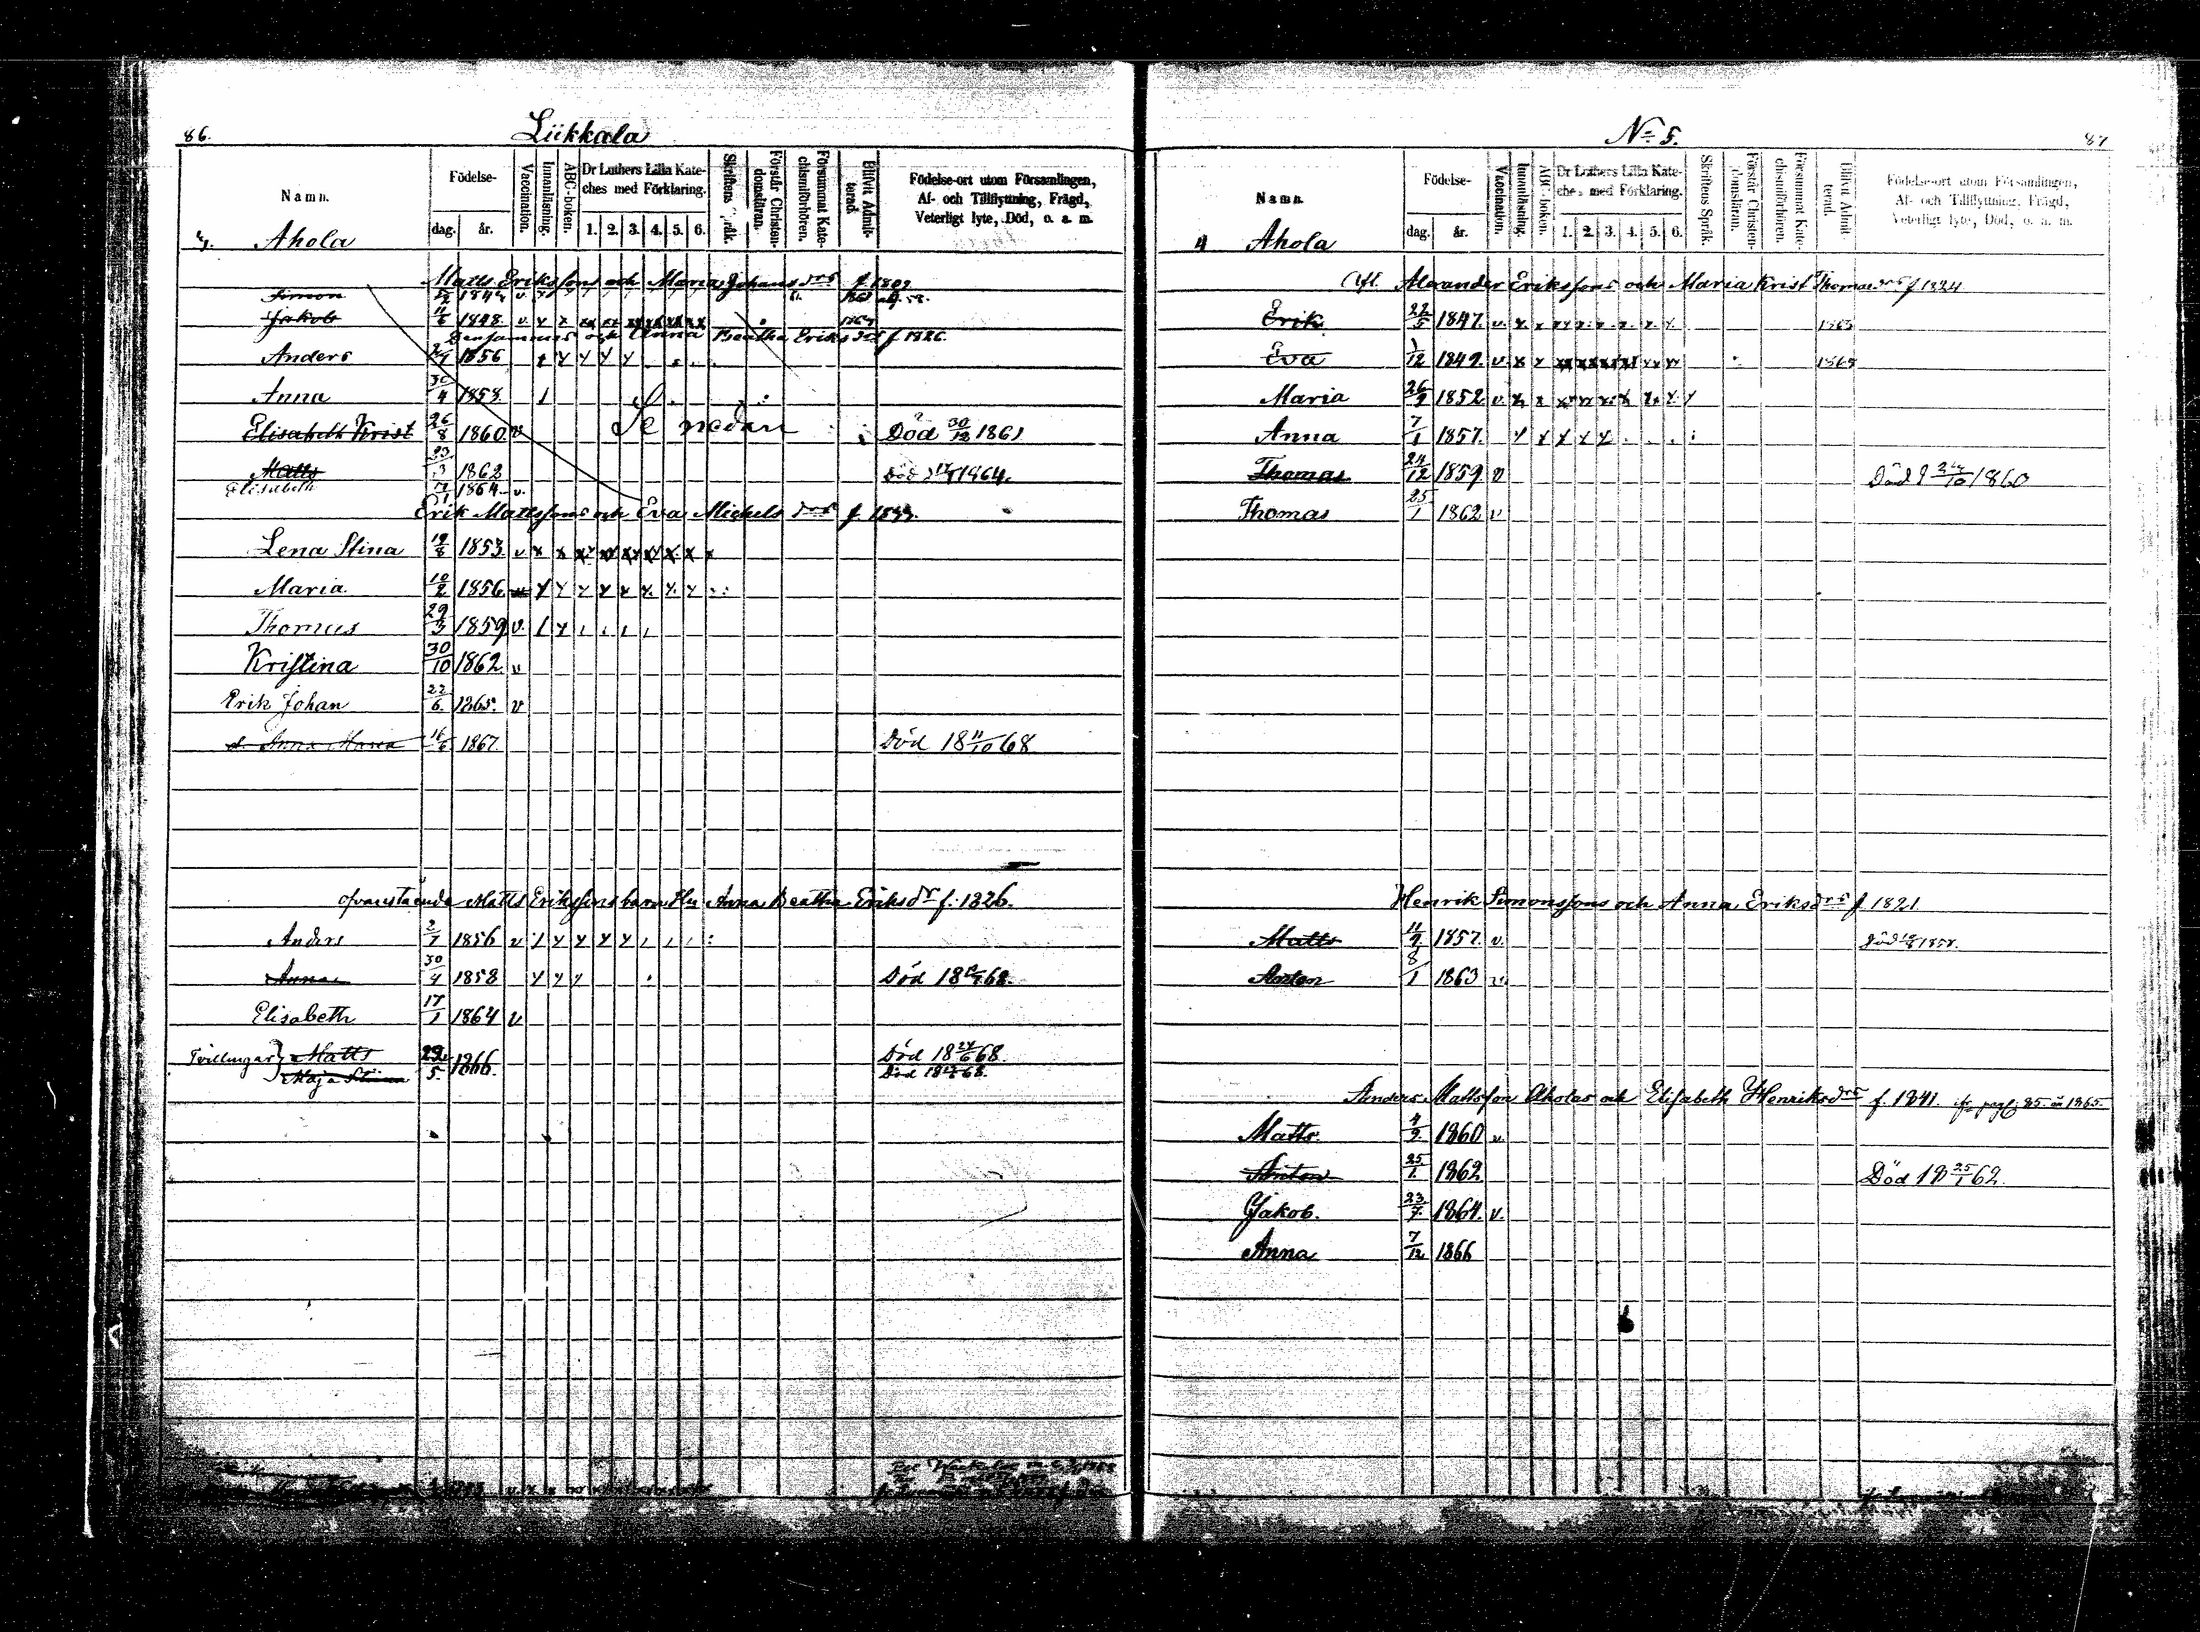 86.
Liikkala
Namn.
Födelse-
dag.
år.
Vaccination.
Innanläsning.
ABC-boken.
Dr Luthers Lilla Kate-
ches med Förklaring.
1. 2. 3. 4. 5. 6.
Skriftens Språk.
Förstår Christen-
domsläran.
Försummat Kate-
chismiförhören.
Blifvit Admit-
terad.
Födelse-ort utom Församlingen,
Af- och Tillflyttning, Frägd,
Veterligt lyte, Död, o. a. m.
4. Ahola
Matts Erikssons och Maria Johansdrs f. 1809
Simon 1844 v
Jakob 11/6 1848 v. x x xx xx xx xx xx xx 1864
Benjamins och Anna Beatha Eriksdrs f 1826.
Anders 2/7 1856
Anna 30/4 1858
Se nedan
Elisabeth Krist 26/8 1860 v Död 30/12 1861
Matts 23/3 1862 Död 1864.
Elisabeth 17/1 1864 v.
Erik Mattssons och Eva Mickelsdrs f.
Lena Stina 19/8 1853 v x x
Maria 10/2 1856
Thomas 29/3 1859 v.
Kristina 30/10 1862 v
Erik Johan 22/6. 1865. v
d. Anna Maria 16/6 1867. Död 18 11/10 68
ofvanstående Matts Erikssons barn Hu Anna Beatha Eriksdr f. 1826.
Anders 2/7 1856 v
Anna 30/4 1858 Död 18 68.
Elisabeth 17/1 1864 v
Tvillingar } Matts 29/5. 1866. Död 18 24/6 68.
Maja Stina Död 18 68.
No 5.
87
Namn.
Födelse-
dag.
år.
Vaccination.
Innanläsning.
ABC-boken.
Dr Luthers Lilla Kate-
ches med Förklaring.
1. 2. 3. 4. 5. 6.
Skriftens Språk.
Förstår Christen-
domsläran.
Försummat Kate-
chismiförhören.
Blifvit Admit-
terad.
Födelse-ort utom Församlingen,
Af- och Tillflyttning, Frägd,
Veterligt lyte, Död, o. a. m.
4 Ahola
Alexander Erikssons och Maria Krist Thomasdrs f 1824
Erik 22/5 1847. v. 1863
Eva 1/12 1849. v. 1865
Maria 26/9 1852 v
Anna 7/1 1857.
Thomas 24/12 1859 v Död 1860
Thomas 25/1 1862 v
Henrik Simonssons och Anna Eriksdrs f 1821.
Matts 11/9 1857. v. Död 1858.
Anton 8/1 1863 v.
Anders Mattsson Aholas och Elisabeth Henriksdrs f. 1841. fr. pag. 85. år 1865.
Matts. 4/9. 1860 v.
Anton 25/1. 1862 Död 18 25/1 62.
Jakob. 23/7. 1864. v.
Anna 7/12 1866